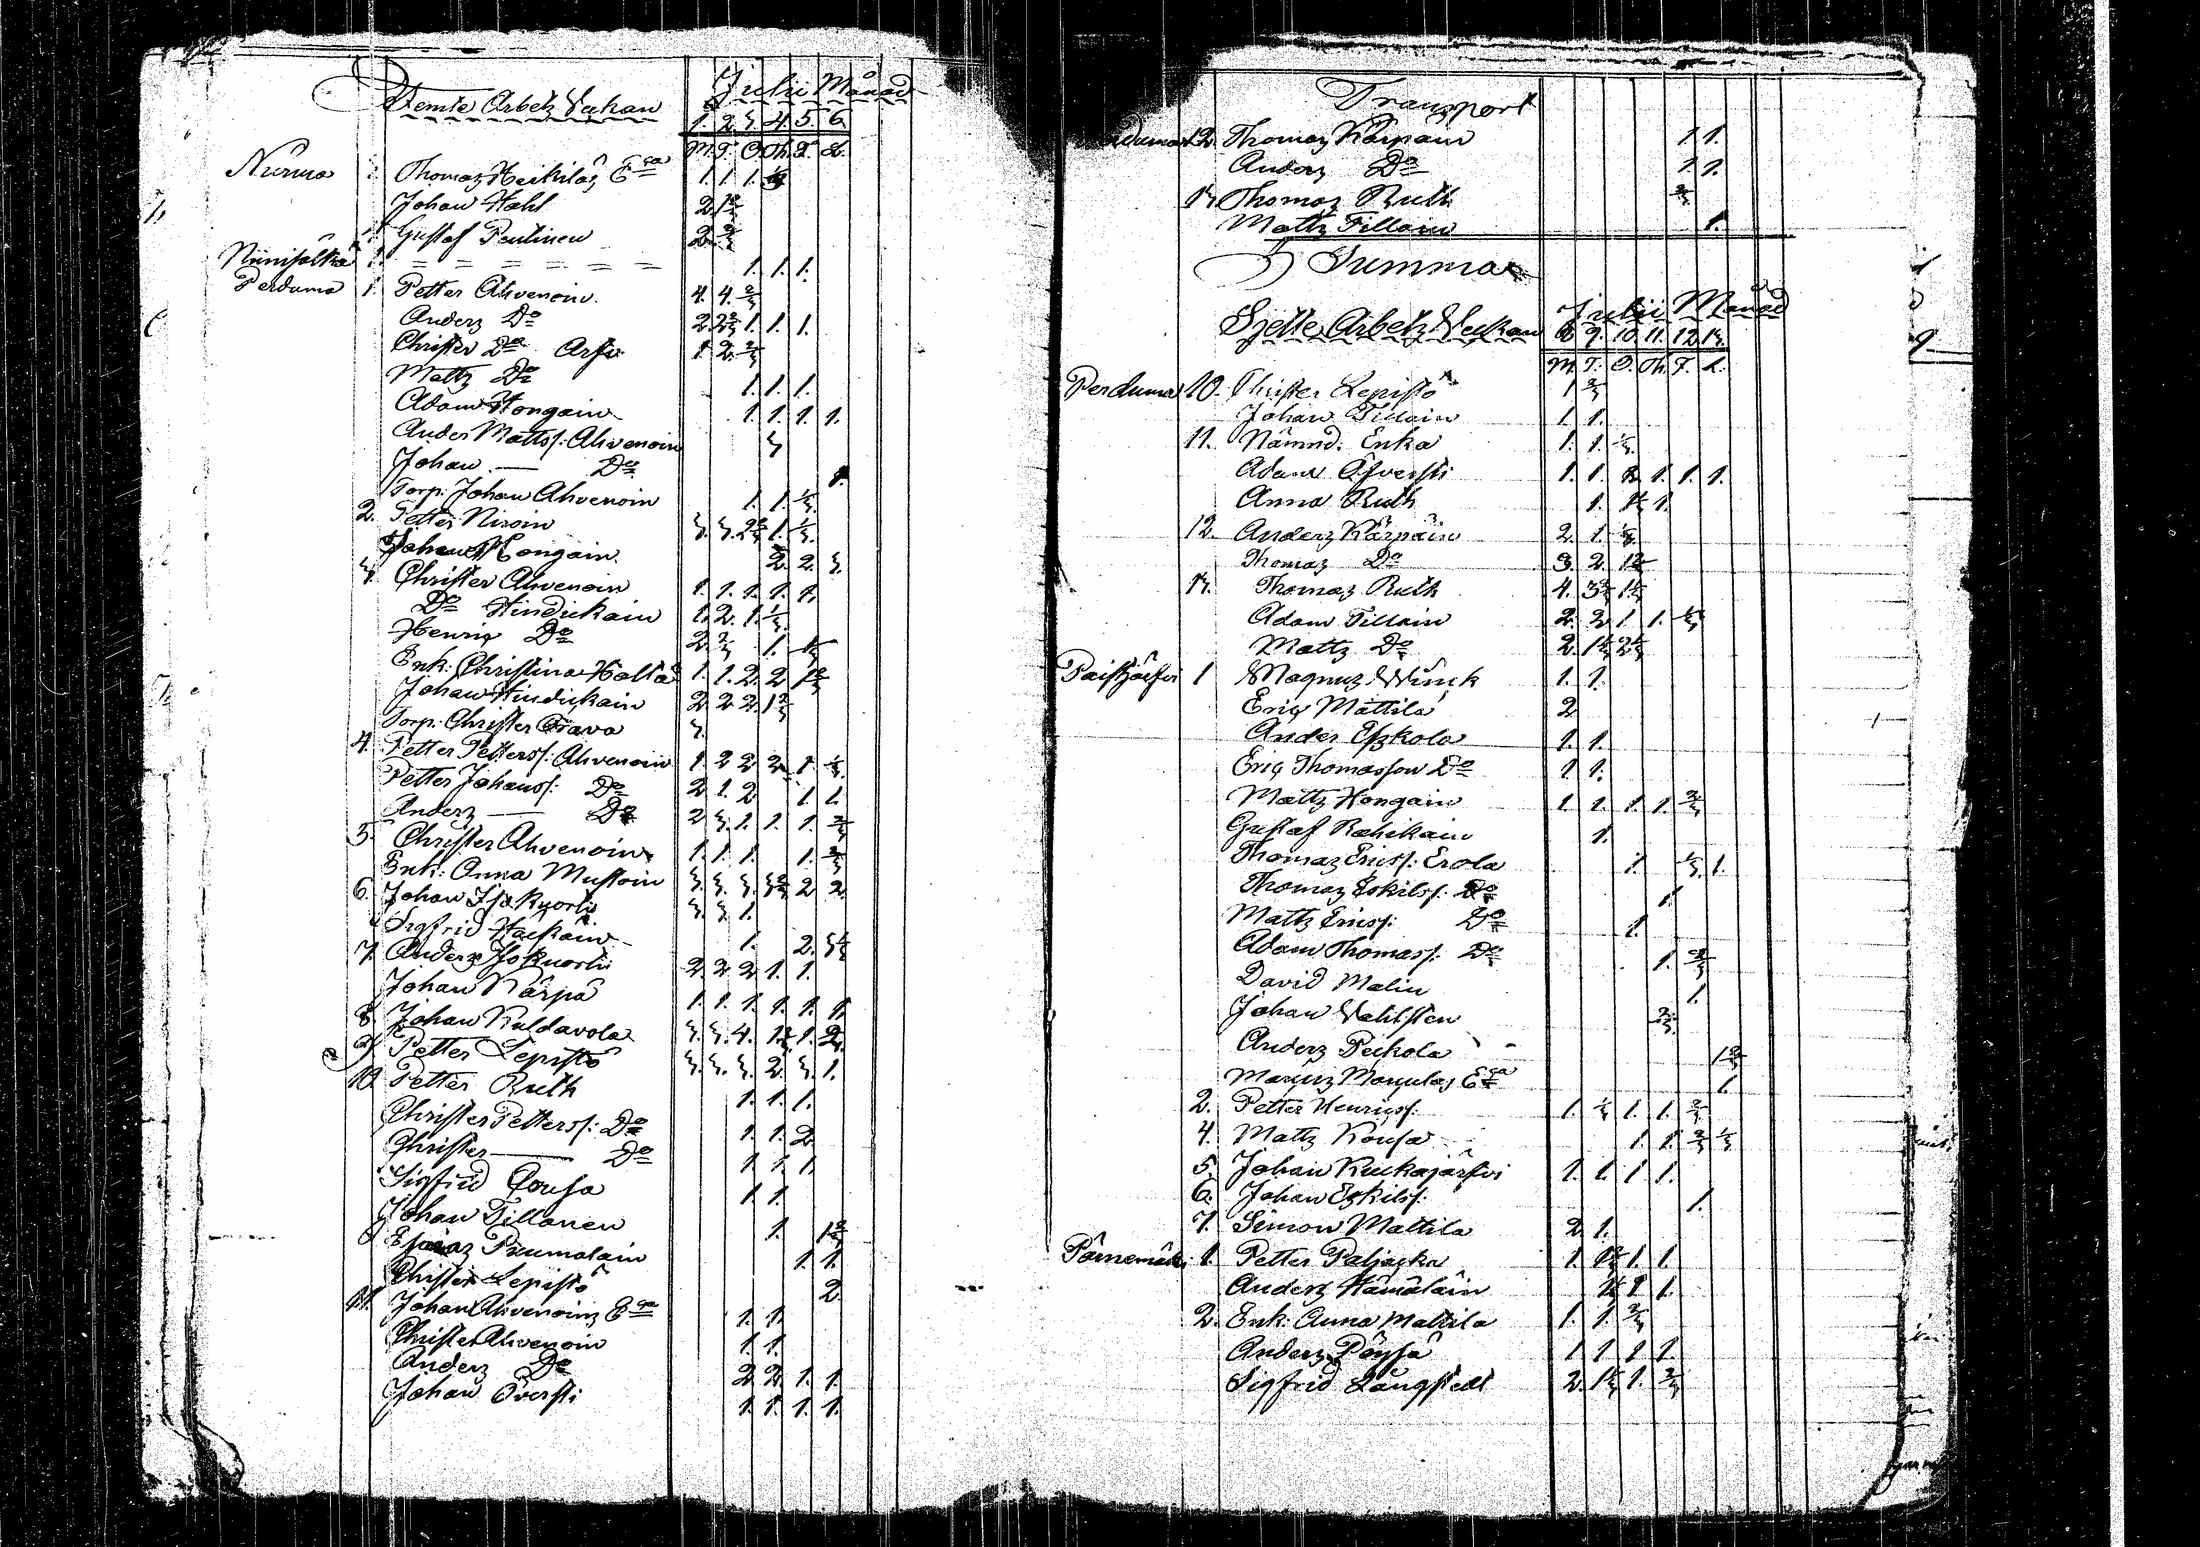 Femte Arbetz Veckan Julii Månad
1. 2. 3. 4. 5. 6.
M. T. O. Th. F. L.
Nurma Thomaz Heikiläz Ega 1. 1. 1.
Johan Hahl 2. 1 2/3
Gustaf Pentinen 2. 2/3
1. 1. 1.
Perduma 1. Petter Ahvenoin 4. 4. 2/3
Anderz Do 2. 2 2/3 1. 1. 1.
Christer Do Arfv. 1. 2. 2/3
Mattz Do 1. 1. 1.
Adam Hongain 1. 1. 1. 1.
Ander Mattss: Ahvenoin 3
Johan — Do 1.
Torp: Johan Ahvenoin 1. 1. 1/3
2. Petter Niroin 3. 3. 2 2/3 1. 1/3
Johan Hongain 2. 2. 3.
3. Christer Ahvenoin 1. 1. 1. 1. 1.
Do Hindickain 1. 2. 1. 1/3
Henriz Do 2. 2/3 1.
Enk: Christina 1. 1. 2. 2. 1 2/3
Johan Hindickain 2. 2. 2. 1 2/3
Torp: Christer 3.
4. Petter Petterss: Ahvenoin 1. 2. 2. 2. 1. 1/3
Petter Johanss: Do 2. 1. 2. 1. 1.
Anderz — Do 2. 3. 1. 1. 1. 2/3
5. Christer Ahvenoin 1. 1. 1. 1. 2/3
Enk: Anna Mustoin 3. 3. 3. 3 2/3 2. 2.
6. Johan Isokuorti 3. 3. 1.
Sigfrid Hackain 1. 2. 3 1/3
7. Anderz Isokuorti 2. 2. 2. 1. 1.
Johan Kärpä 1. 1. 1. 1. 1. 1.
8. Johan Kuldavola 3. 3. 4. 1 1/3 1. 2.
9. Petter Lepistö 3. 3. 3. 2. 3. 1.
10. Petter Ruth 1. 1. 1.
Christer Petterss: Do 1. 1. 2.
Christer — Do 1. 1. 1.
Sigfrid Cousa 1. 1.
Johan Tillonen 1. 1 2/3
Esaiaz Prumalain 1. 1.
Christer Lepistö 2.
11. Johan Ahvenoinz Ega 1. 1.
Christer Ahvenoin 1. 1.
Anderz Do 2. 2. 1. 1.
Johan Öfversti 1. 1. 1. 1.
Transport
12. Thomaz Kärpäin 1. 1.
Anderz Do 1. 1.
13. Thomaz Ruth 2/3
Mattz Tillain 1.
Summa
Sjette Arbetz Veckan Julii Månad
8. 9. 10. 11. 12. 13.
M. T. O. Th. F. L.
Perduma 10. Christer Lepistö 1 2/3
Johan Tillain 1. 1.
11. Nämnd. Enka 1. 1. 1/3
Adam Öfversti 1. 1. 1. 1. 1.
Anna Ruth 1. 1 1/3 1.
12. Anderz Kärpäin 2. 1.
Thomaz Do 3. 2. 1 2/3
13. Thomaz Ruth 4. 3 2/3 1 1/3
Adam Tillain 2. 2. 1. 1. 1/3
Mattz Do 2. 1 1/3 2 1/3
Paistjärfvi 1 Magnuz Winck 1. 1.
Eriq Mattila 2.
Ander Eskola 1. 1.
Eriq Thomasson Do 1. 1.
Mattz Hongain 1. 1. 1. 1. 2/3
Gustaf Rahikain 1.
Thomaz Ericss: Erola 1. 1/3 1.
Thomaz Eskilss: Do 1.
Mattz Ericss: Do 1.
Adam Thomass: Do 1. 2/3
David Malin 1.
Johan Vahlsten 2/3
Anderz Peckola 1 2/3
Ega 1.
2. Petter Henricss: 1. 1/3 1. 1. 2/3
4. Mattz Kousa 1. 1. 2/3 1/3
5. Johan Kuckajärfvi 1. 1. 1. 1.
6. Johan Eskilss: 1.
7. Simon Mattila 2. 1.
Pärnemäki 1. Petter Paljacka 1. 1 2/3 1. 1
Anderz Hämäläin 1 1/3 1 1.
2. Enk: Anna Mattila 1. 1. 2/3
Anderz Pöysä 1 1 1 1.
Sigfrid Långstedt 2. 1 2/3 1. 2/3